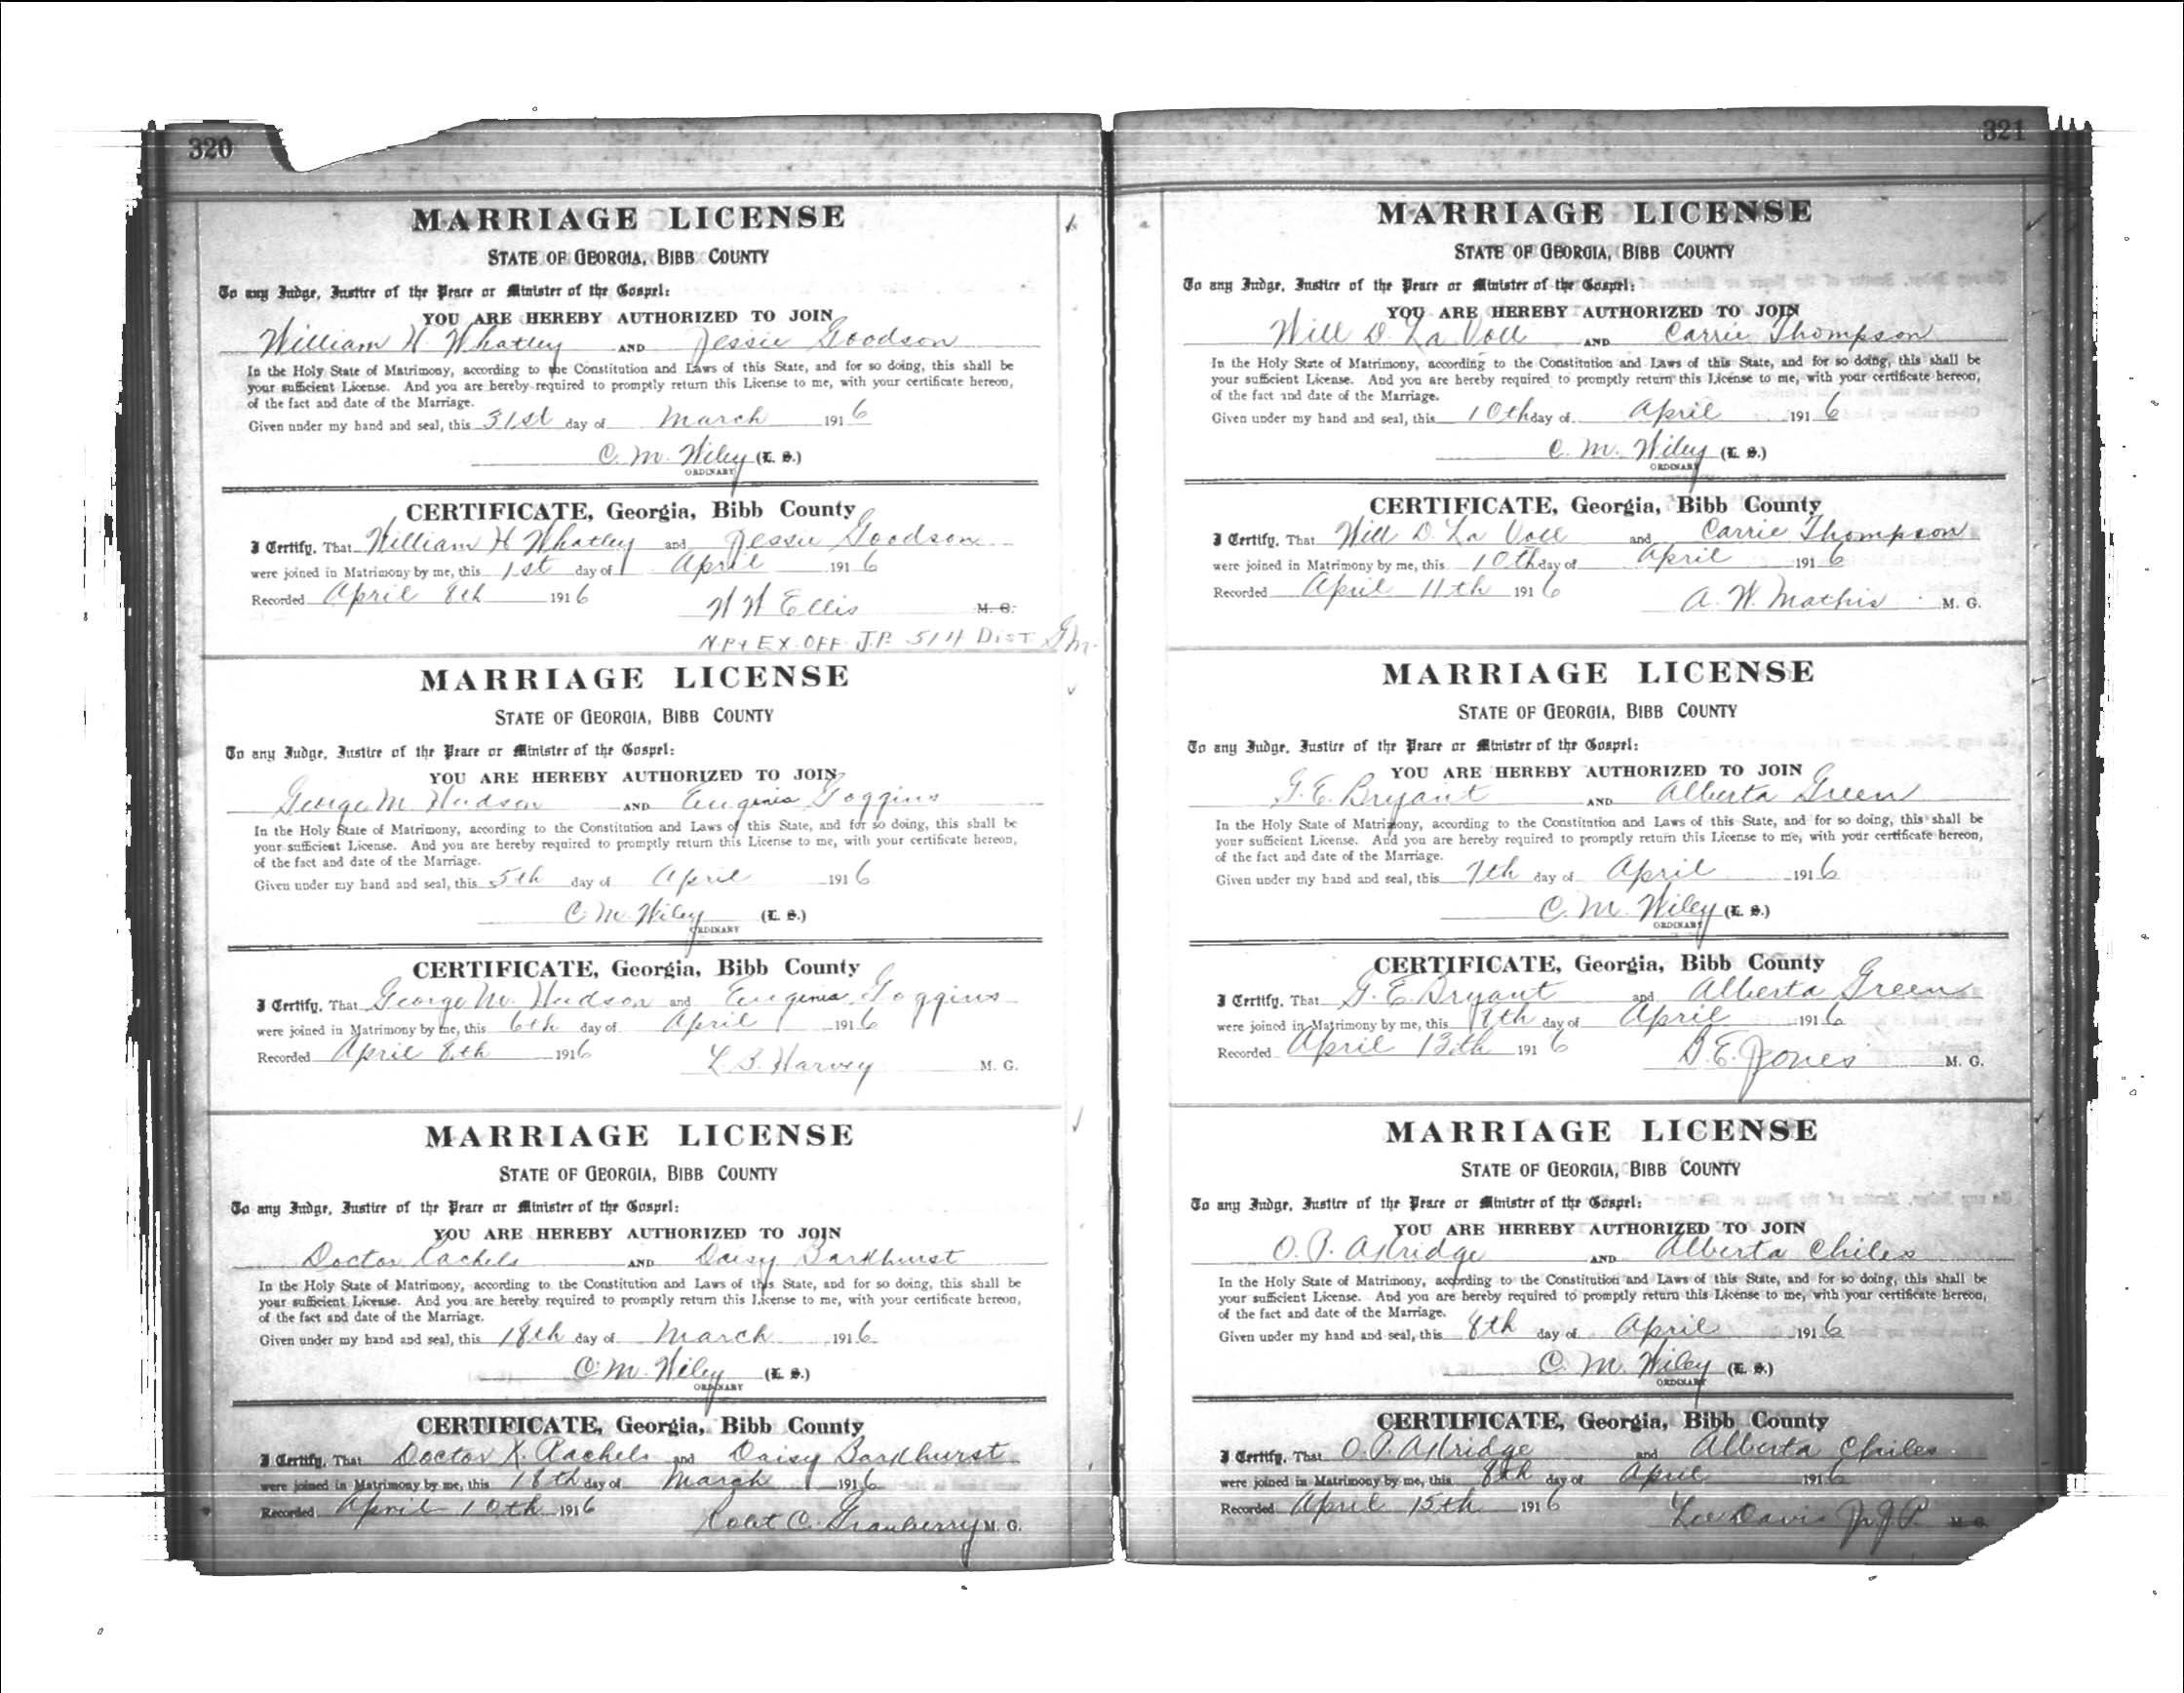 320
MARRIAGE LICENSE
STATE OF GEORGIA, BIBB COUNTY
To any Judge, Justice of the Peace or Minister of the Gospel:
YOU ARE HEREBY AUTHORIZED TO JOIN
William H. Whatley AND Jessie Goodson
In the Holy State of Matrimony, according to the Constitution and Laws of this State, and for so doing, this shall be
your sufficient License. And you are hereby required to promptly return this License to me, with your certificate hereon,
of the fact and date of the Marriage.
Given under my hand and seal, this 31st day of March 1916
C. M. Wiley (L. S.)
ORDINARY
CERTIFICATE, Georgia, Bibb County
I Certify, That William H Whatley and Jessie Goodson
were joined in Matrimony by me, this 1st day of April 1916
Recorded April 8th 1916
W W Ellis M. G.
N.P. & EX. OFF. J.P. 514 DIST G.M.
MARRIAGE LICENSE
STATE OF GEORGIA, BIBB COUNTY
To any Judge, Justice of the Peace or Minister of the Gospel:
YOU ARE HEREBY AUTHORIZED TO JOIN
George M. Hudson AND Eugenia Goggins
In the Holy State of Matrimony, according to the Constitution and Laws of this State, and for so doing, this shall be
your sufficient License. And you are hereby required to promptly return this License to me, with your certificate hereon,
of the fact and date of the Marriage.
Given under my hand and seal, this 5th day of April 1916
C. M. Wiley (L. S.)
ORDINARY
CERTIFICATE, Georgia, Bibb County
I Certify, That George M. Hudson and Eugenia Goggins
were joined in Matrimony by me, this 6th day of April 1916
Recorded April 8th 1916
L. B. Harvey M. G.
MARRIAGE LICENSE
STATE OF GEORGIA, BIBB COUNTY
To any Judge, Justice of the Peace or Minister of the Gospel:
YOU ARE HEREBY AUTHORIZED TO JOIN
Doctor Rachels AND Daisy Barkhurst
In the Holy State of Matrimony, according to the Constitution and Laws of this State, and for so doing, this shall be
your sufficient License. And you are hereby required to promptly return this License to me, with your certificate hereon,
of the fact and date of the Marriage.
Given under my hand and seal, this 18th day of March 1916
C. M. Wiley (L. S.)
ORDINARY
CERTIFICATE, Georgia, Bibb County
I Certify, That Doctor X. Rachels and Daisy Barkhurst
were joined in Matrimony by me, this 18th day of March 1916
Recorded April 10th 1916
Robt C. Granberry M. G.
321
MARRIAGE LICENSE
STATE OF GEORGIA, BIBB COUNTY
To any Judge, Justice of the Peace or Minister of the Gospel:
YOU ARE HEREBY AUTHORIZED TO JOIN
Will D. La Voll AND Carrie Thompson
In the Holy State of Matrimony, according to the Constitution and Laws of this State, and for so doing, this shall be
your sufficient License. And you are hereby required to promptly return this License to me, with your certificate hereon,
of the fact and date of the Marriage.
Given under my hand and seal, this 10th day of April 1916
C. M. Wiley (L. S.)
ORDINARY
CERTIFICATE, Georgia, Bibb County
I Certify, That Will D. La Voll and Carrie Thompson
were joined in Matrimony by me, this 10th day of April 1916
Recorded April 11th 1916
A. W. Mathis M. G.
MARRIAGE LICENSE
STATE OF GEORGIA, BIBB COUNTY
To any Judge, Justice of the Peace or Minister of the Gospel:
YOU ARE HEREBY AUTHORIZED TO JOIN
G. E. Bryant AND Alberta Green
In the Holy State of Matrimony, according to the Constitution and Laws of this State, and for so doing, this shall be
your sufficient License. And you are hereby required to promptly return this License to me, with your certificate hereon,
of the fact and date of the Marriage.
Given under my hand and seal, this 7th day of April 1916
C. M. Wiley (L. S.)
ORDINARY
CERTIFICATE, Georgia, Bibb County
I Certify, That G. E. Bryant and Alberta Green
were joined in Matrimony by me, this 8th day of April 1916
Recorded April 13th 1916
D. E. Jones M. G.
MARRIAGE LICENSE
STATE OF GEORGIA, BIBB COUNTY
To any Judge, Justice of the Peace or Minister of the Gospel:
YOU ARE HEREBY AUTHORIZED TO JOIN
O. P. Aldridge AND Alberta Chiles
In the Holy State of Matrimony, according to the Constitution and Laws of this State, and for so doing, this shall be
your sufficient License. And you are hereby required to promptly return this License to me, with your certificate hereon,
of the fact and date of the Marriage.
Given under my hand and seal, this 8th day of April 1916
C. M. Wiley (L. S.)
ORDINARY
CERTIFICATE, Georgia, Bibb County
I Certify, That O. P. Aldridge and Alberta Chiles
were joined in Matrimony by me, this 8th day of April 1916
Recorded April 15th 1916
Lee Davis J.P. M. G.